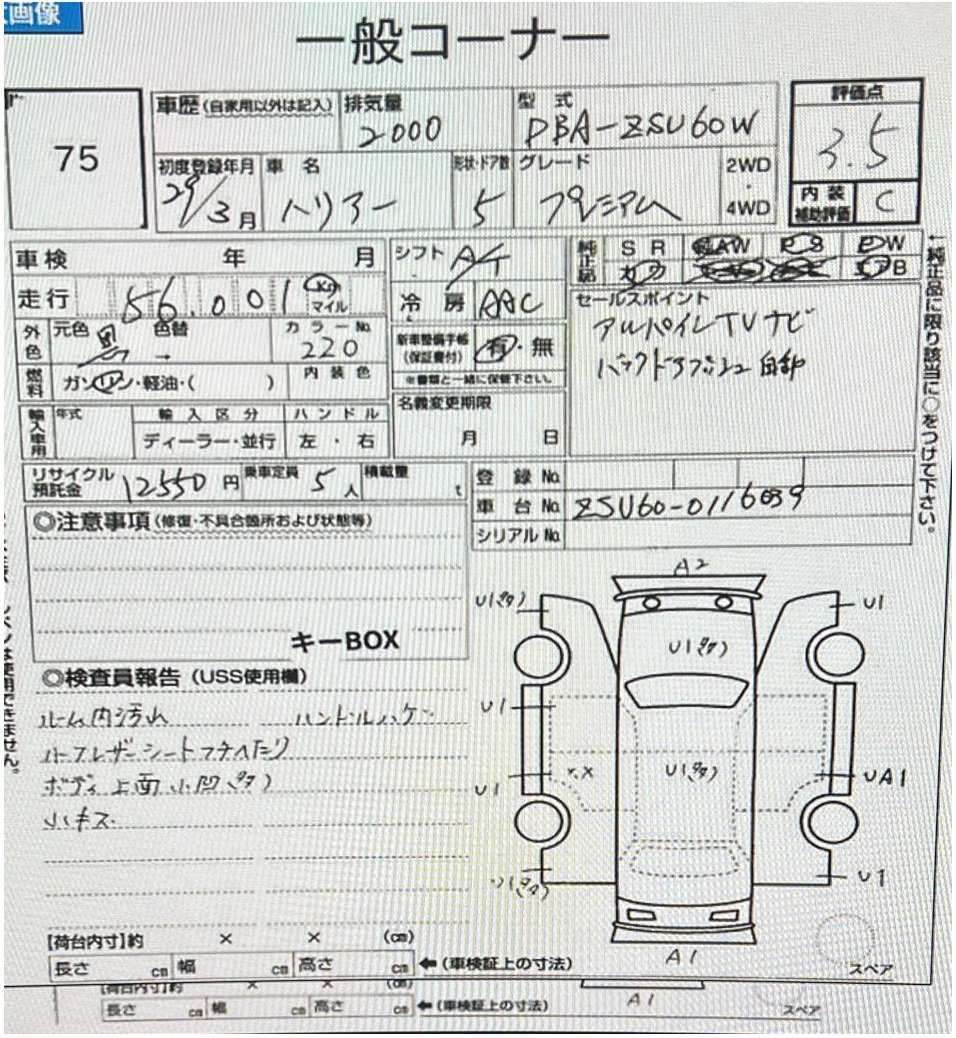 画像
一般コーナー
75
車歴(自家用以外は記入)
排気量
2000
型式
DBA-ZSU60W
評価点
3.5
初度登録年月
29/3月
車名
ハリアー
形状・ドア数
5
グレード
プレミアム
2WD
・
4WD
内装
補助評価
C
車検 年 月
シフト
A/T
純正品
S R
AW
P S
P W
走行
56.001
Km
マイル
冷房
AAC
セールスポイント
アルパイレTVナビ
バックドアプッシュ自動
外色
元色
黒
色替
→
カラーNo.
220
新車整備手帳
(保証書付)
有・無
※書類と一緒に保管下さい。
燃料
ガソリン・軽油・( )
内装色
輸入車用
年式
輸入区分
ディーラー・並行
ハンドル
左・右
名義変更期限
月 日
←純正品に限り該当に○をつけて下さい。
リサイクル
預託金
12550円
乗車定員
5人
積載量
t
登録No.
車台No.
ZSU60-0116039
シリアルNo.
◎注意事項(修復・不具合箇所および状態等)
キーBOX
◎検査員報告(USS使用欄)
ルーム内汚れ ハンドルハゲ
ハーフレザーシートフチへたり
ボディ上面小凹(タ)
小キズ
A2
U1(タ)
U1
U1(タ)
U1
U1
U1(タ)
UA1
U1
A1
スペア
[荷台内寸]約 × × (cm)
長さ cm 幅 cm 高さ cm ←(車検証上の寸法)
[荷台内寸]約 × × (cm)
長さ cm 幅 cm 高さ cm ←(車検証上の寸法)
A1
スペア